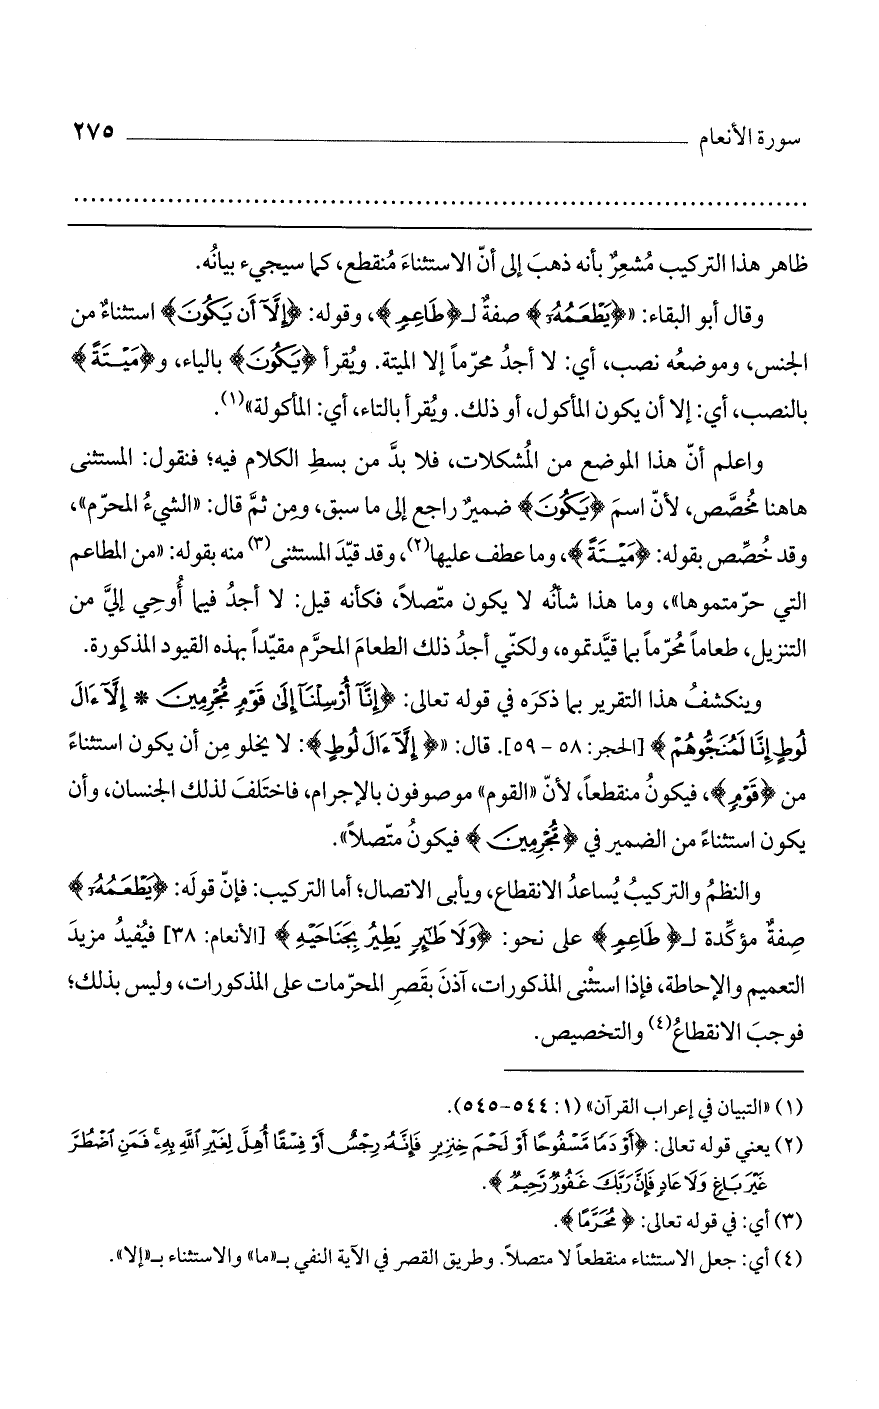 سورة الأنعام ٢٧٥
ظاهر هذا التركيب مُشعِرٌ بأنه ذهبَ إلى أنّ الاستثناءَ مُنقطع، كما سيجيء بيانُه.
وقال أبو البقاء: «﴿يَطْعَمُهُۥٓ﴾ صفةٌ لـ﴿طَاعِمٍ﴾، وقوله: ﴿إِلَّآ أَن يَكُونَ﴾ استثناءٌ من
الجنس، وموضعُه نصب، أي: لا أجدُ محرّماً إلا الميتة. ويُقرأ ﴿يَكُونَ﴾ بالياء، و﴿مَيْتَةً﴾
بالنصب، أي: إلا أن يكون المأكول، أو ذلك. ويُقرأ بالتاء، أي: المأكولة»(١).
واعلم أنّ هذا الموضع من المُشكلات، فلا بدَّ من بسطِ الكلام فيه؛ فنقول: المستثنى
هاهنا مخُصَّص، لأنّ اسمَ ﴿يَكُونَ﴾ ضميرٌ راجع إلى ما سبق، ومِن ثمَّ قال: «الشيءُ المحرّم»،
وقد خُصِّص بقوله: ﴿مَيْتَةً﴾، وما عطف عليها(٢)، وقد قيّدَ المستثنى(٣) منه بقوله: «من المطاعم
التي حرّمتموها»، وما هذا شأنُه لا يكون متّصلاً، فكأنه قيل: لا أجدُ فيما أُوحِي إليَّ من
التنزيل، طعاماً مُحرّماً بما قيَّدتموه، ولكنّي أجدُ ذلك الطعامَ المحرَّم مقيّداً بهذه القيود المذكورة.
وينكشفُ هذا التقرير بما ذكرَه في قوله تعالى: ﴿إِنَّآ أُرْسِلْنَآ إِلَىٰ قَوْمٍ مُّجْرِمِينَ * إِلَّآ ءَالَ
لُوطٍ إِنَّا لَمُنَجُّوهُمْ﴾ [الحجر: ٥٨ - ٥٩]. قال: «﴿إِلَّآ ءَالَ لُوطٍ﴾: لا يخلو مِن أن يكون استثناءً
من ﴿قَوْمٍ﴾، فيكونُ منقطعاً، لأنّ «القوم» موصوفون بالإجرام، فاختَلفَ لذلك الجنسان، وأن
يكون استثناءً من الضمير في ﴿مُّجْرِمِينَ﴾ فيكونُ متّصلاً».
والنظمُ والتركيبُ يُساعدُ الانقطاع، ويأبى الاتصال؛ أما التركيب: فإنّ قولَه: ﴿يَطْعَمُهُۥٓ﴾
صِفةٌ مؤكِّدة لـ﴿طَاعِمٍ﴾ على نحو: ﴿وَلَا طَٰٓئِرٍ يَطِيرُ بِجَنَاحَيْهِ﴾ [الأنعام: ٣٨] فيُفيدُ مزيدَ
التعميم والإحاطة، فإذا استثْنى المذكورات، آذنَ بقَصرِ المحرّمات على المذكورات، وليس بذلك؛
فوجبَ الانقطاعُ(٤) والتخصيص.
(١) «التبيان في إعراب القرآن» (١: ٥٤٤-٥٤٥).
(٢) يعني قوله تعالى: ﴿أَوْ دَمًا مَّسْفُوحًا أَوْ لَحْمَ خِنزِيرٍ فَإِنَّهُۥ رِجْسٌ أَوْ فِسْقًا أُهِلَّ لِغَيْرِ ٱللَّهِ بِهِۦ ۚ فَمَنِ ٱضْطُرَّ
غَيْرَ بَاغٍ وَلَا عَادٍ فَإِنَّ رَبَّكَ غَفُورٌ رَّحِيمٌ﴾.
(٣) أي: في قوله تعالى: ﴿مُحَرَّمًا﴾.
(٤) أي: جعل الاستثناء منقطعاً لا متصلاً. وطريق القصر في الآية النفي بـ«ما» والاستثناء بـ«إلا».